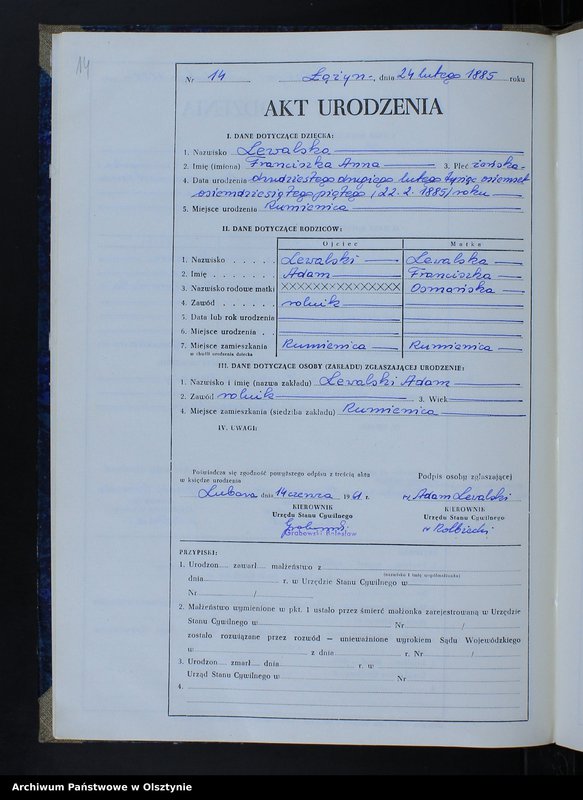 14
Nr 14 Łążyn, dnia 24 lutego 1885 roku
AKT URODZENIA
I. DANE DOTYCZĄCE DZIECKA:
1. Nazwisko Lewalska
2. Imię (imiona) Franciszka Anna 3. Płeć żeńska
4. Data urodzenia dwudziestego drugiego lutego tysiąc osiemset
osiemdziesiątego piątego (22.2.1885) roku
5. Miejsce urodzenia Rumienica
II. DANE DOTYCZĄCE RODZICÓW:
Ojciec Matka
1. Nazwisko Lewalski Lewalska
2. Imię Adam Franciszka
3. Nazwisko rodowe matki XXXXXXXXXXXXXX Osmańska
4. Zawód rolnik
5. Data lub rok urodzenia
6. Miejsce urodzenia
7. Miejsce zamieszkania Rumienica Rumienica
w chwili urodzenia dziecka
III. DANE DOTYCZĄCE OSOBY (ZAKŁADU) ZGŁASZAJĄCEJ URODZENIE:
1. Nazwisko i imię (nazwa zakładu) Lewalski Adam
2. Zawód rolnik 3. Wiek
4. Miejsce zamieszkania (siedziba zakładu) Rumienica
IV. UWAGI:
Poświadcza się zgodność powyższego odpisu z treścią aktu
w księdze urodzenia
Podpis osoby zgłaszającej
Lubawa dnia 14 czerwca 1961 r.
Adam Lewalski
KIEROWNIK
Urzędu Stanu Cywilnego
Grabowski Bolesław
KIEROWNIK
Urzędu Stanu Cywilnego
PRZYPISKI:
1. Urodzon zawarł małżeństwo z
(nazwisko i imię współmałżonka)
dnia r. w Urzędzie Stanu Cywilnego w
Nr /
2. Małżeństwo wymienione w pkt. 1 ustało przez śmierć małżonka zarejestrowaną w Urzędzie
Stanu Cywilnego w Nr /
zostało rozwiązane przez rozwód — unieważnione wyrokiem Sądu Wojewódzkiego
w z dnia r. Nr /
3. Urodzon zmarł dnia r. w
Urząd Stanu Cywilnego w Nr
4.
Archiwum Państwowe w Olsztynie